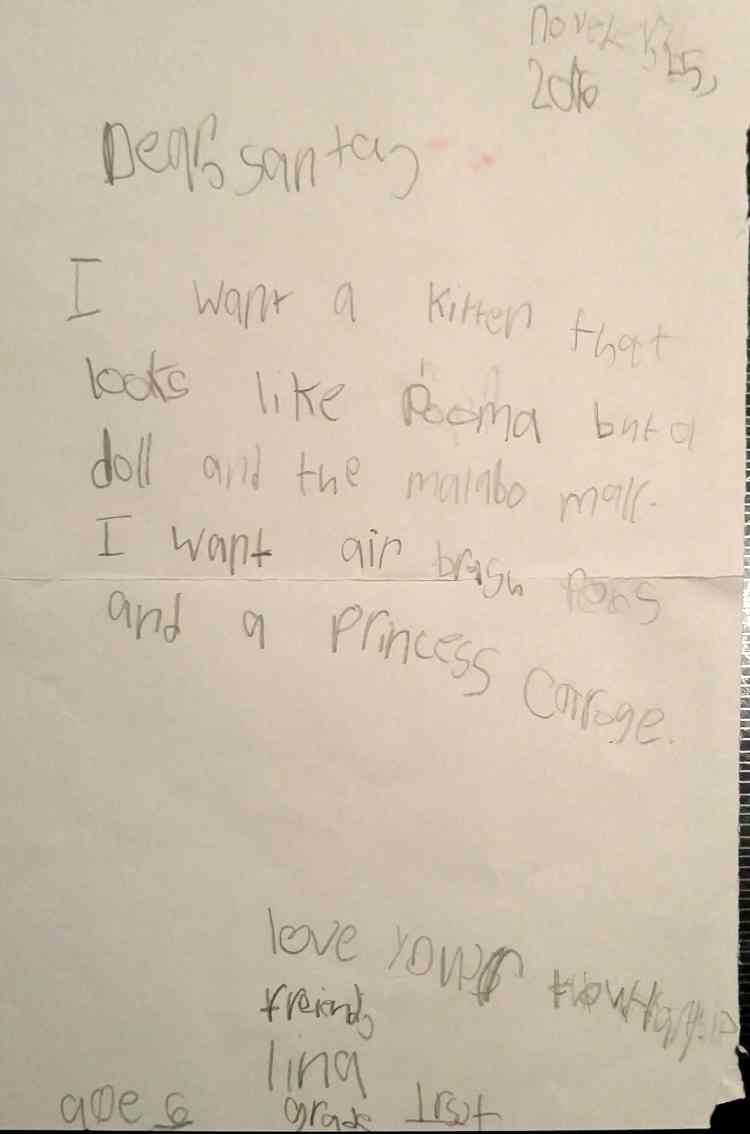 2016
Dear, santa,
I want a kitten that
looks like Pooma but a
doll and the malabo mall.
I want air brash pens
and a princess carroge.
love your
freind,
lina
age 6 grade 1rst